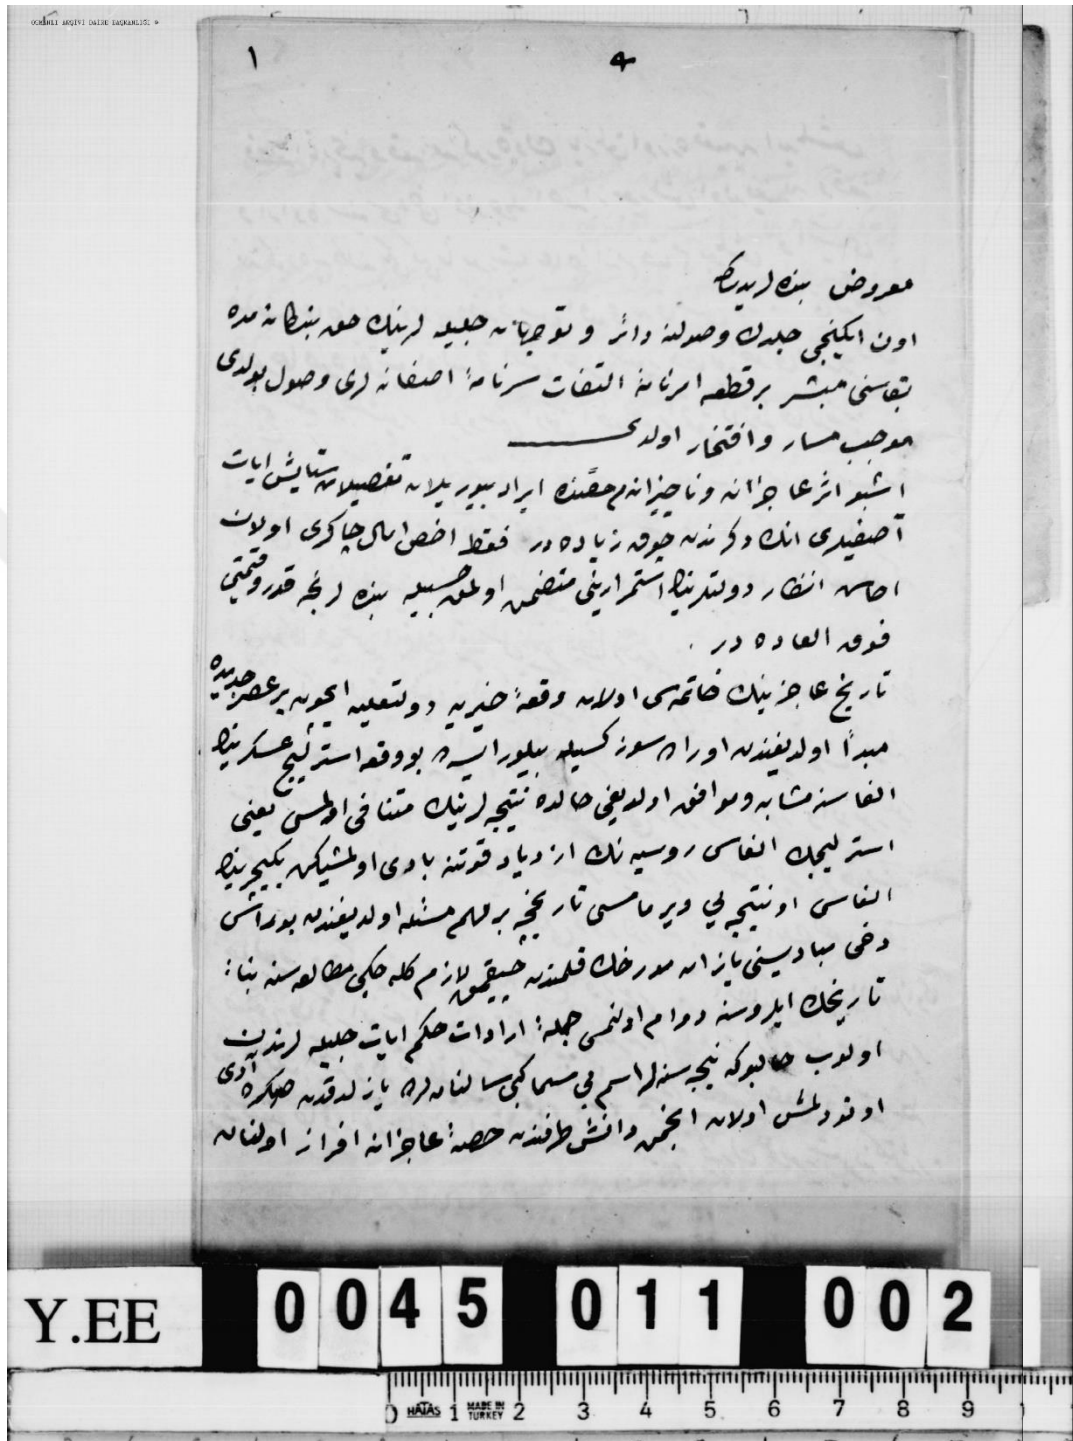 OSMANLI ARŞİVİ DAİRE BAŞKANLIĞI
١
معروض بنده لریدرکه
اون ایکنجی جلدك وصولنه دائر و توجهات جلیله لرینك حق بندکانه مده
بقاسنی مبشر بر قطعه امرنامهٔ التفات سرنامهٔ اصفانه لری وصول بولدی
موجب مسار و افتخار اولدی
اشبو اثر عاجزانه و ناچیزانه م حقنده ایراد بیوریلان تفصیلات ستایش ایات
آصفیلری انك دکرندن چوق زیاده در فقط اخص امال چاکری اولان
انظار دولتلرینك استمرارینی متضمن اولمق حسبیله بنده لرنجه قدر و قیمتی
فوق العاده در .
تاریخ عاجزینك خاتمه سی اولان وقعهٔ خیریه دولتعلیه ایچون بر عصر جدیده
مبدأ اولدیغندن اوراده سوز کسیله بیلور ایسه ده بو وقعه استرلیچ عسکرینك
الغاسنه مشابه و موافق اولدیغی حالده نتیجه لرینك متنافی اولمسی یعنی
استرلیچك الغاسی روسیه نك ازدیاد قوتنه بادی اولمشیکن یکیچرینك
الغاسی او نتیجه یی ویرمامسی تاریخجه بر مهم مسئله اولدیغندن بوراسی
دخی مبادیسنی یازان مورخك قلمندن چیقمق لازم کله جکی مطالعه سنه بناءً
تاریخك ایلروسنه دوام اولنمسی جملهٔ ارادات حکم ایات جلیله لرندن
اولوب حالبوکه نیجه سنه لر اسم بی مسما کبی سالنامه لرده یازلدقدن صکره آدی
اونودلمش اولان انجمن دانش طرفندن حصهٔ عاجزانه افراز اولنان
Y.EE 0045 011 002
0 HATAS 1 MADE IN TURKEY 2 3 4 5 6 7 8 9